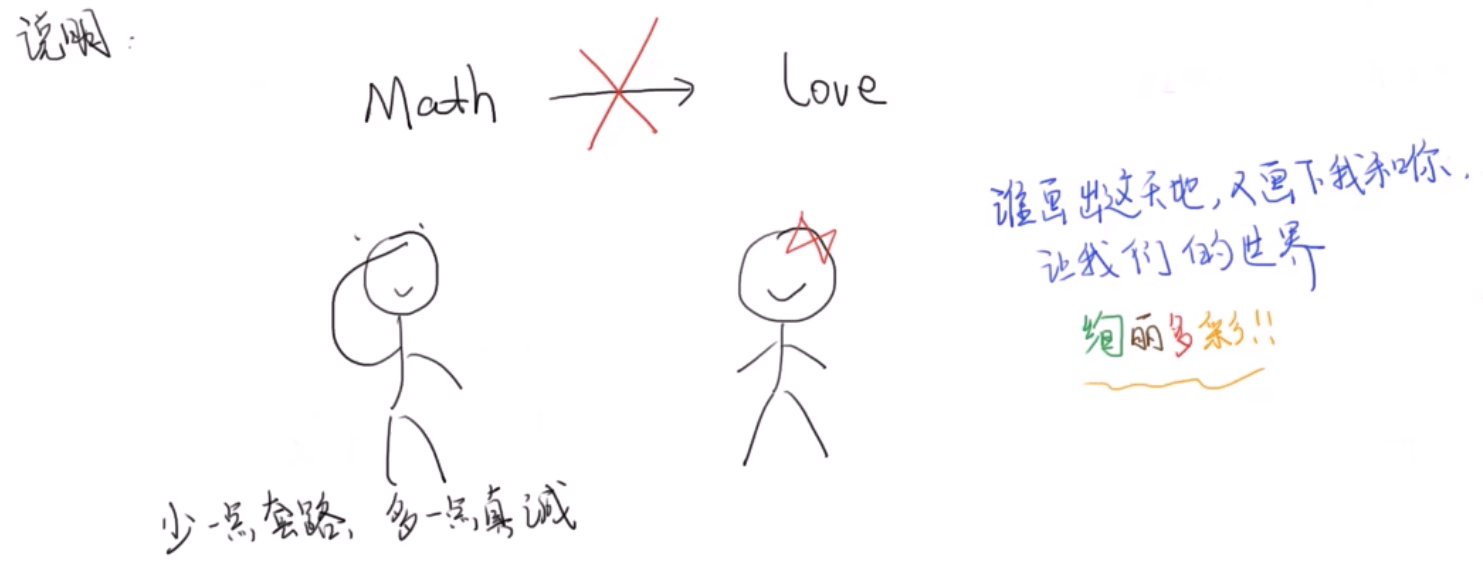 说明:
Math → Love
谁画出这天地,又画下我和你,
让我们的世界
绚丽多彩!!
少一点套路,多一点真诚